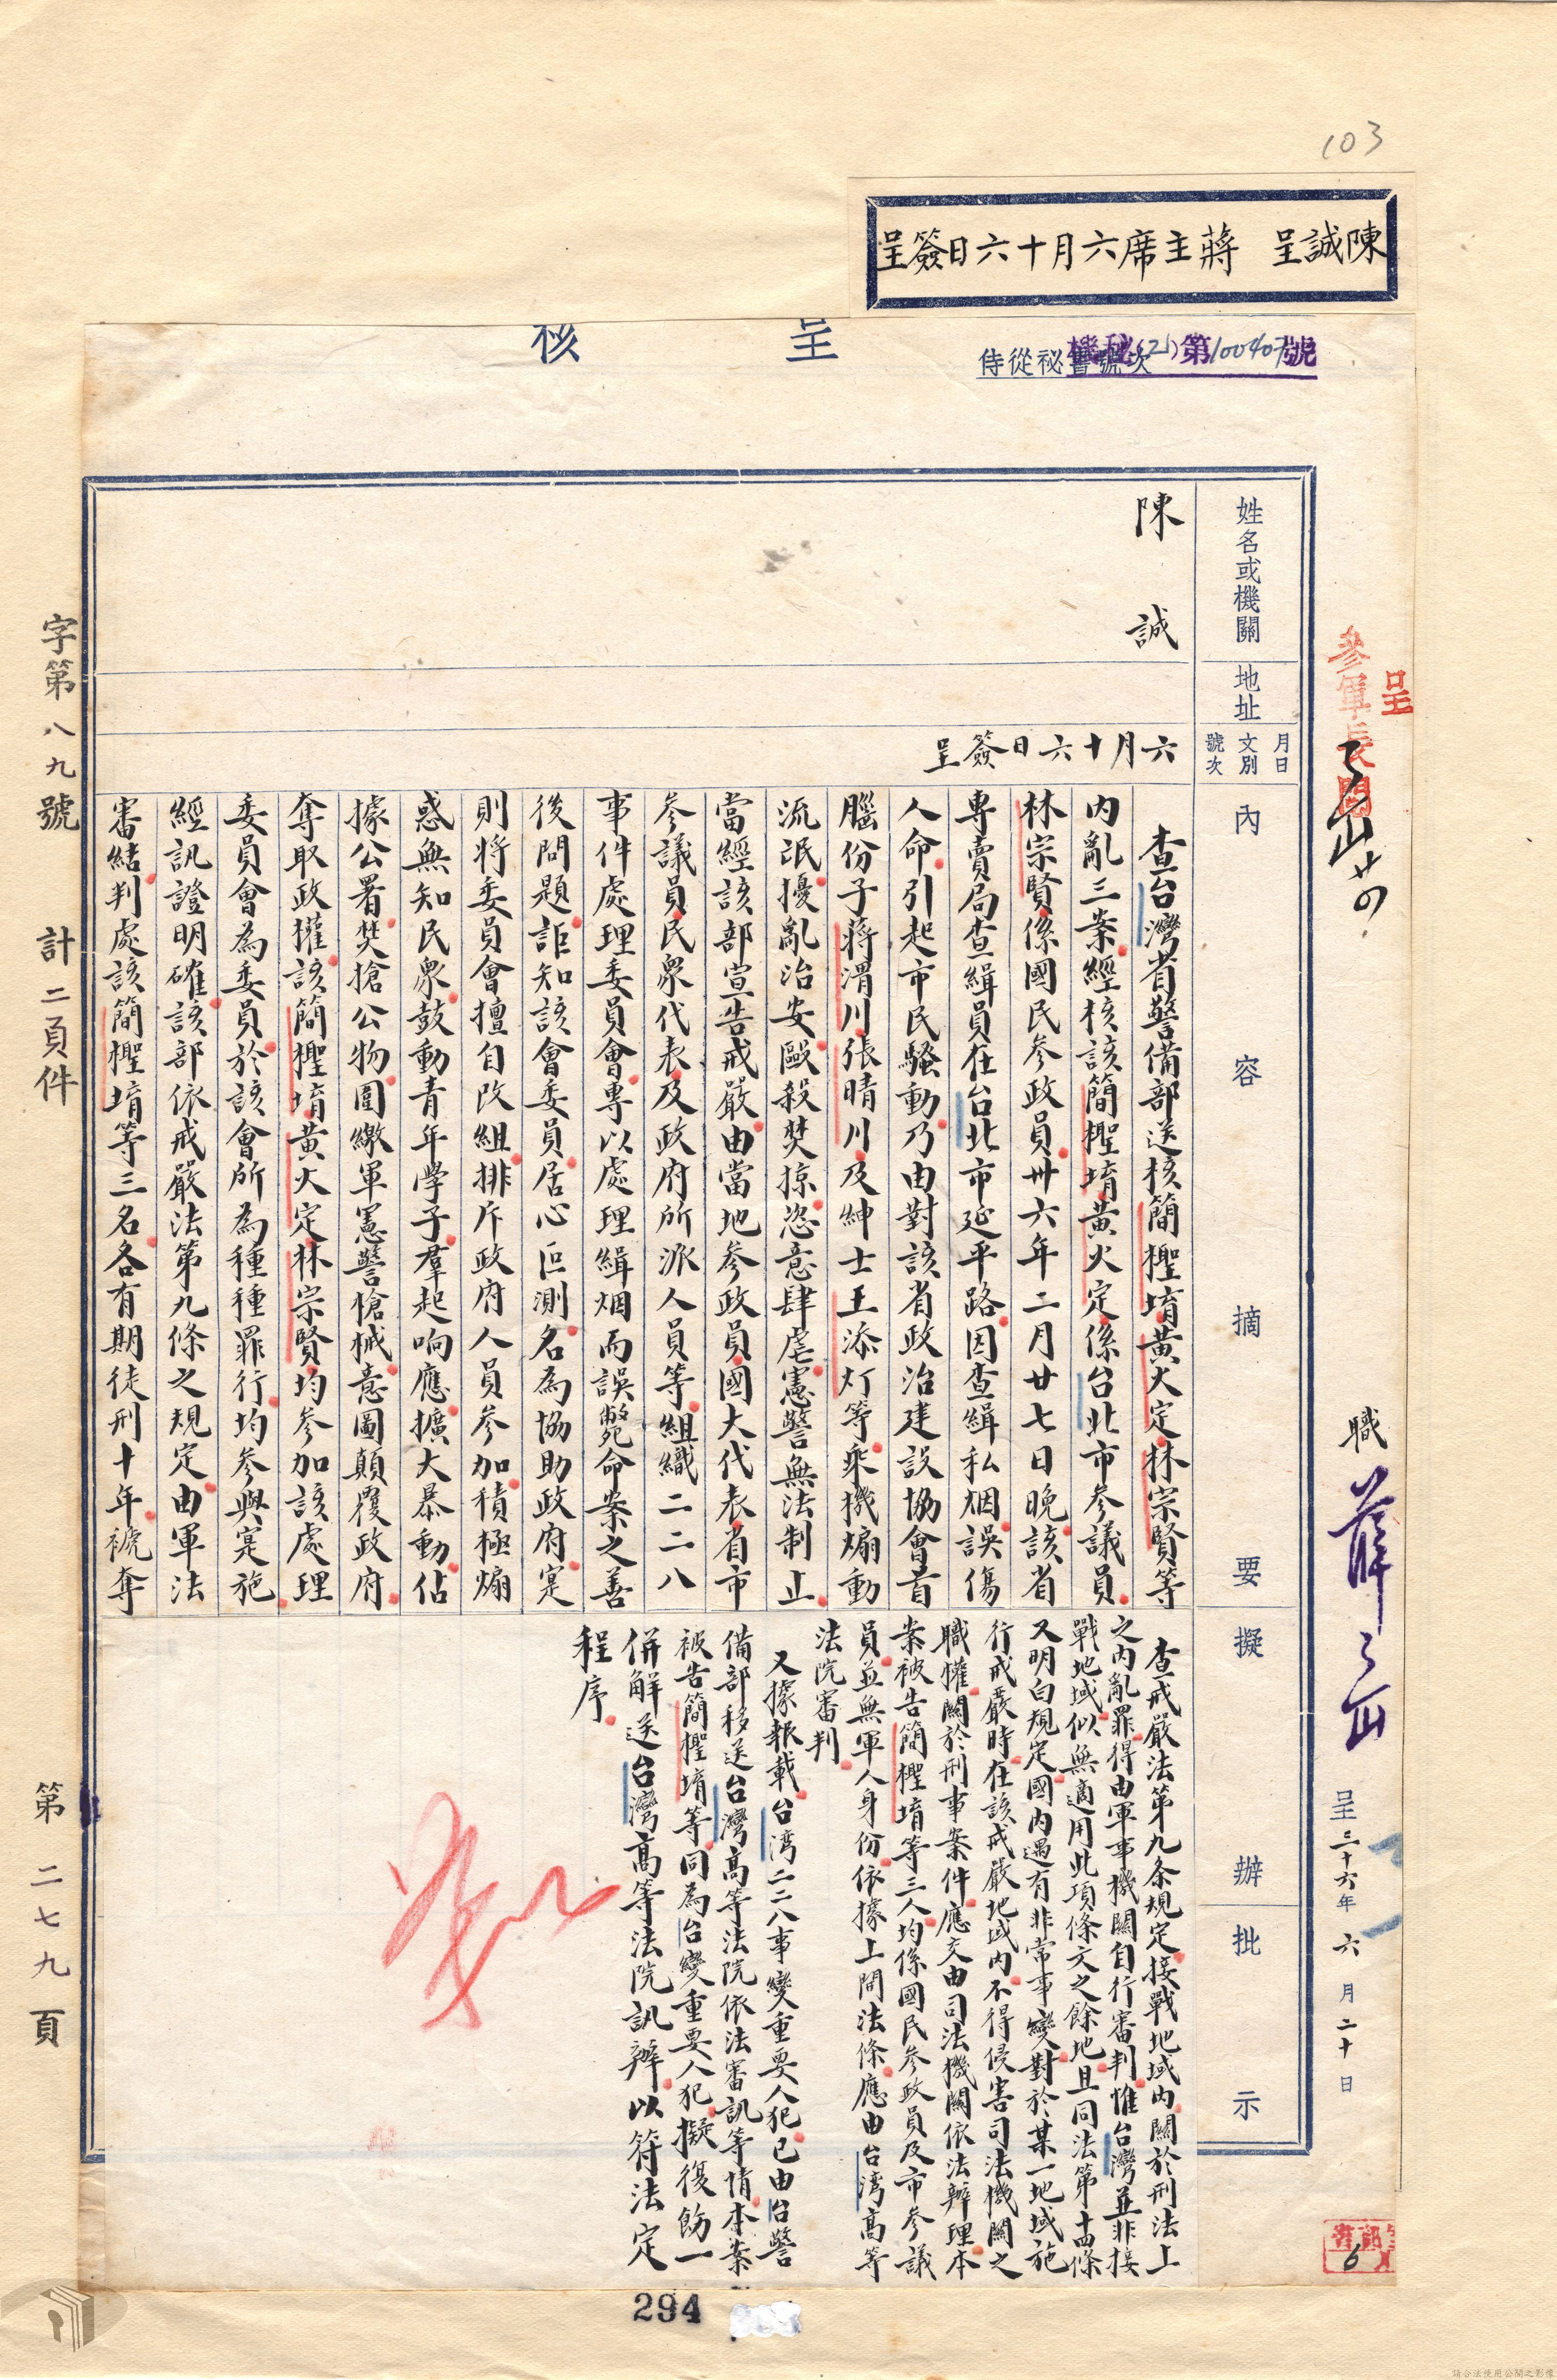 103
陳誠呈 蔣主席六月十六日簽呈
呈核
侍從祕書號次
機秘(21)第100407號
呈
參軍長閱
職
薛岳
呈三十六年六月二十日
姓名或機關
地址
月日
文別
號次
內容摘要
擬辦
批示
陳誠
六月十六日簽呈
查台灣省警備部送核簡檉堉黃火定林宗賢等
內亂三案經核該簡檉堉黃火定係台北市參議員
林宗賢係國民參政員卅六年二月廿七日晚該省
專賣局查緝員在台北市延平路因查緝私烟誤傷
人命引起市民騷動乃由對該省政治建設協會首
腦份子蔣渭川張晴川及紳士王添灯等乘機煽動
流氓擾亂治安毆殺焚掠恣意肆虐憲警無法制止
當經該部宣告戒嚴由當地參政員國大代表省市
參議員民眾代表及政府所派人員等組織二二八
事件處理委員會專以處理緝烟而誤斃命案之善
後問題詎知該會委員居心叵測名為協助政府寔
則將委員會擅自改組排斥政府人員參加積極煽
惑無知民眾鼓動青年學子羣起响應擴大暴動佔
據公署焚搶公物圍繳軍憲警槍械意圖顛覆政府
奪取政權該簡檉堉黃火定林宗賢均參加該處理
委員會為委員於該會所為種種罪行均參與寔施
經訊證明確該部依戒嚴法第九條之規定由軍法
審結判處該簡檉堉等三名各有期徒刑十年褫奪
查戒嚴法第九条規定接戰地域內關於刑法上
之內亂罪得由軍事機關自行審判惟台灣並非接
戰地域似無適用此項條文之餘地且同法第十四條
又明白規定國內遇有非常事變對於某一地域施
行戒嚴時在該戒嚴地域內不得侵害司法機關之
職權關於刑事案件應交由司法機關依法辦理本
案被告簡檉堉等三人均係國民參政員及市參議
員並無軍人身份依據上開法條應由台湾高等
法院審判
又據報載台湾二二八事變重要人犯已由台警
備部移送台灣高等法院依法審訊等情本案
被告簡檉堉等同為台變重要人犯擬復飭一
併解送台灣高等法院訊辦以符法定
程序
字第八九號 計二頁件 第二七九頁
6
294
請合法使用公開之影像